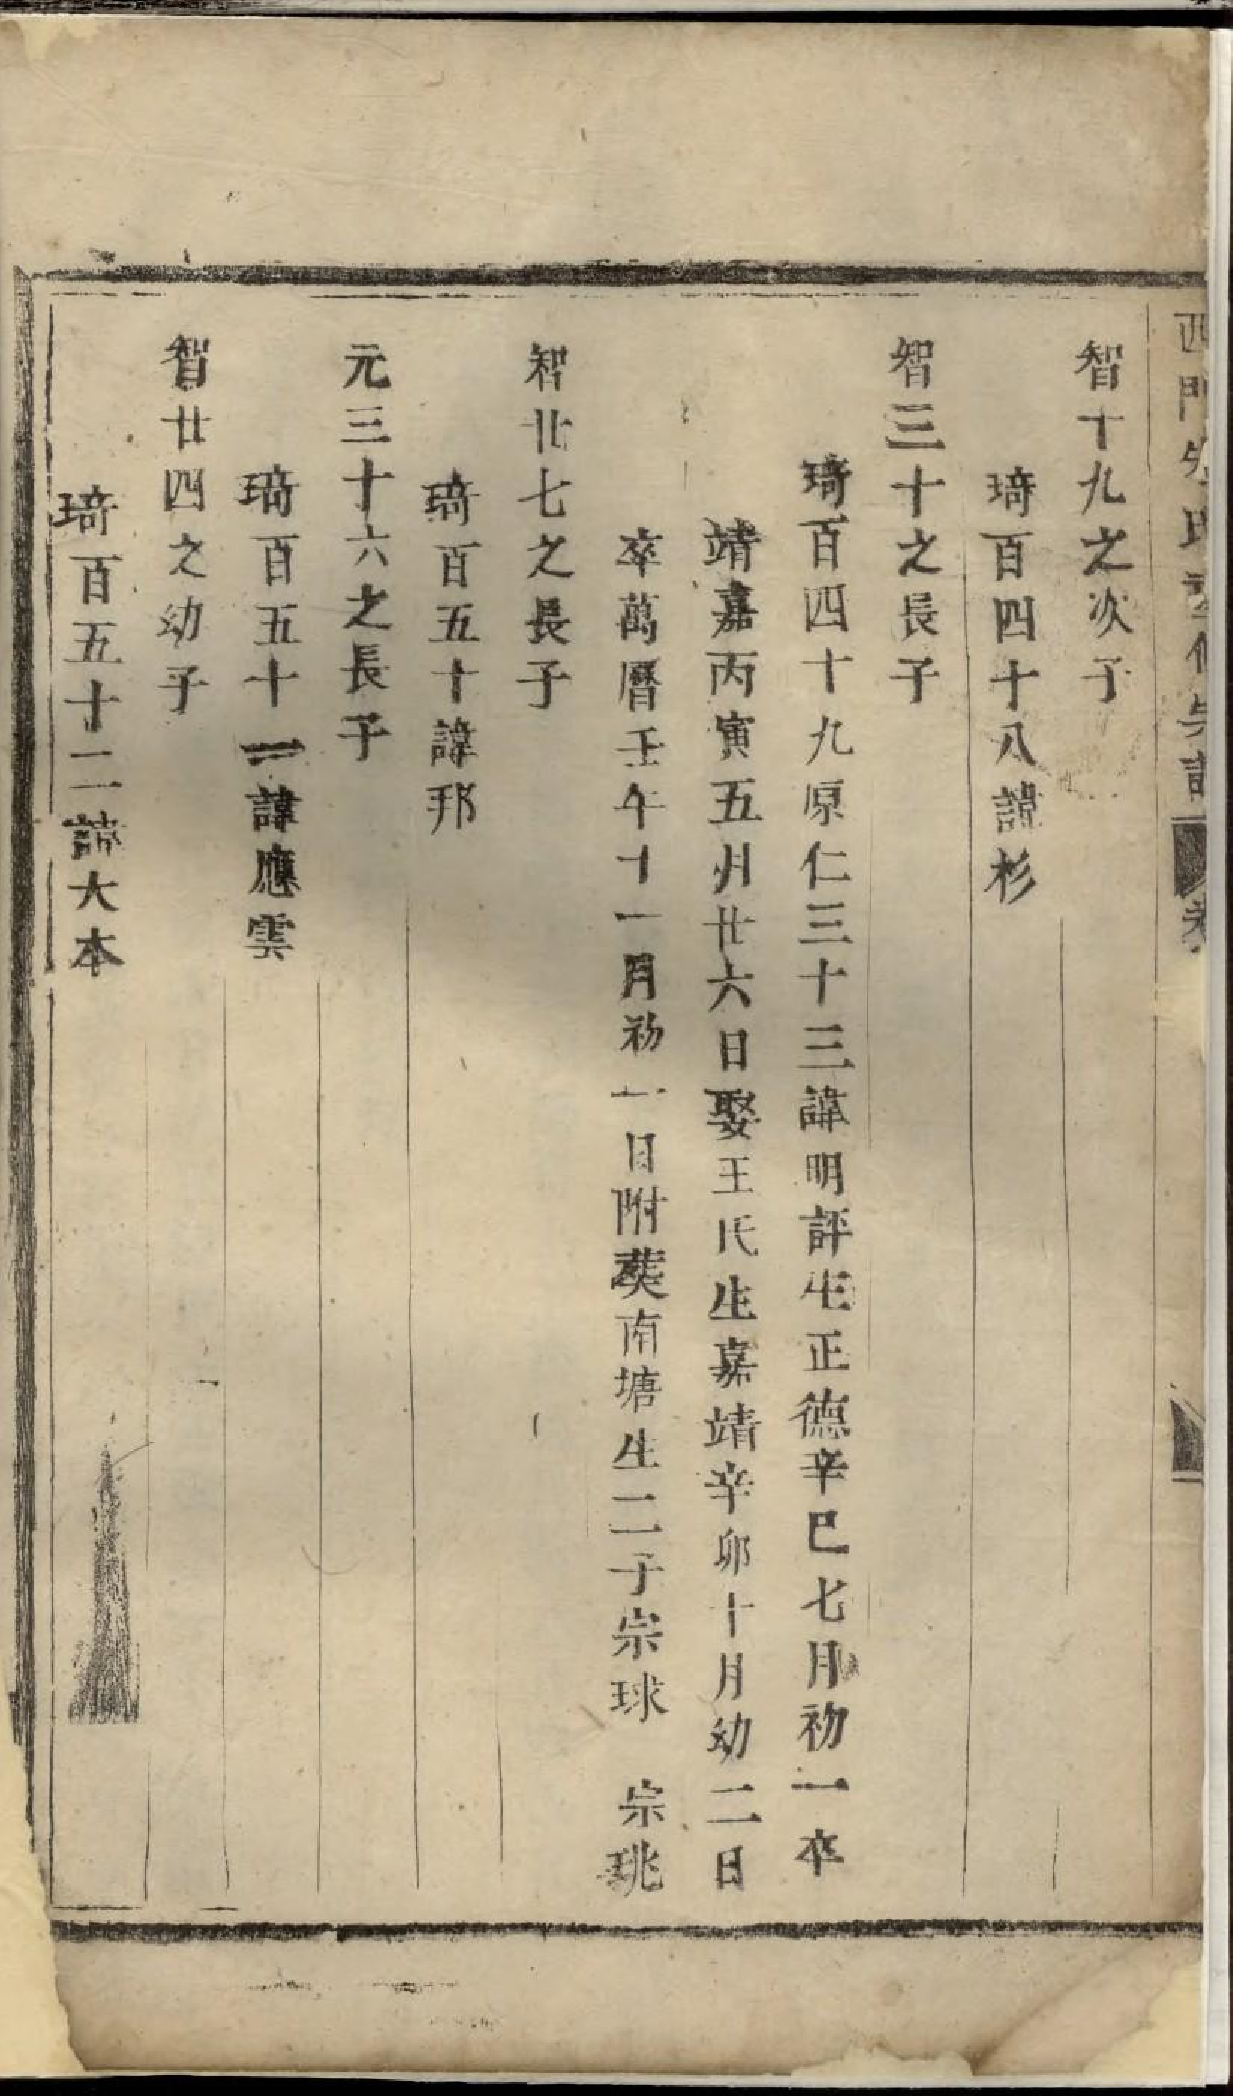 智十九之次子
琦百四十八諱杉
智三十之長子
琦百四十九原仁三十三諱明評生正德辛巳七月初一卒
靖嘉丙寅五月廿六日娶王氏生嘉靖辛卯十月幼二日
卒萬曆壬午十一月初一日附葵南塘生二子宗球　宗珧
智廿七之長子
琦百五十諱邦
元三十六之長子
琦百五十一諱應雲
智廿四之幼子
琦百五十二諱大本